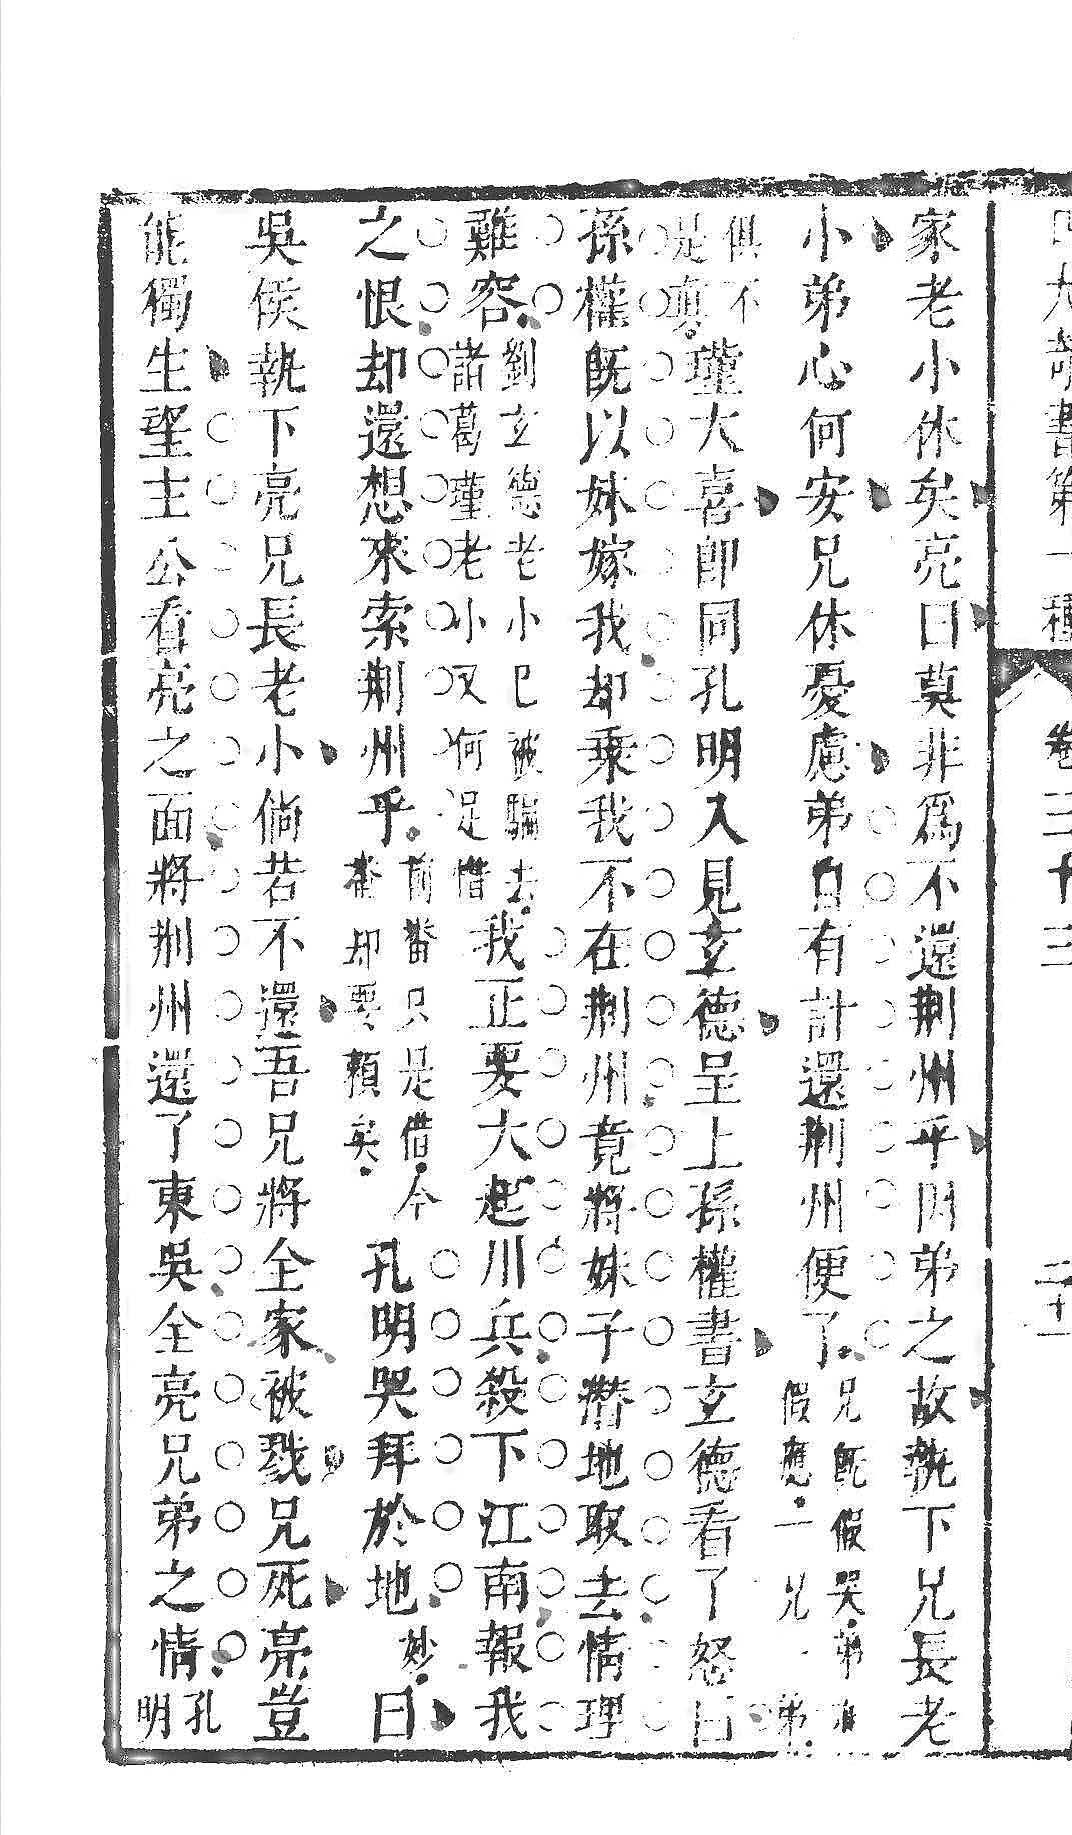 四大奇書第一種
卷三十三
二十一
家老小休矣亮曰莫非爲不還荆州乎因弟之故執下兄長老
小弟心何安兄休憂慮弟自有計還荆州便了
兄既假哭弟亦
假應一兄一弟
俱不
是真
瑾大喜卽同孔明入見玄德呈上孫權書玄德看了怒曰
孫權既以妹嫁我却乘我不在荆州竟將妹子潛地取去情理
難容
劉玄德老小已被騙去
諸葛瑾老小又何足惜
我正要大起川兵殺下江南報我
之恨却還想來索荆州乎
前番只是借今
番却要賴矣
孔明哭拜於地
妙
曰
吳侯執下亮兄長老小倘若不還吾兄將全家被戮兄死亮豈
能獨生望主公看亮之面將荆州還了東吳全亮兄弟之情
孔
明